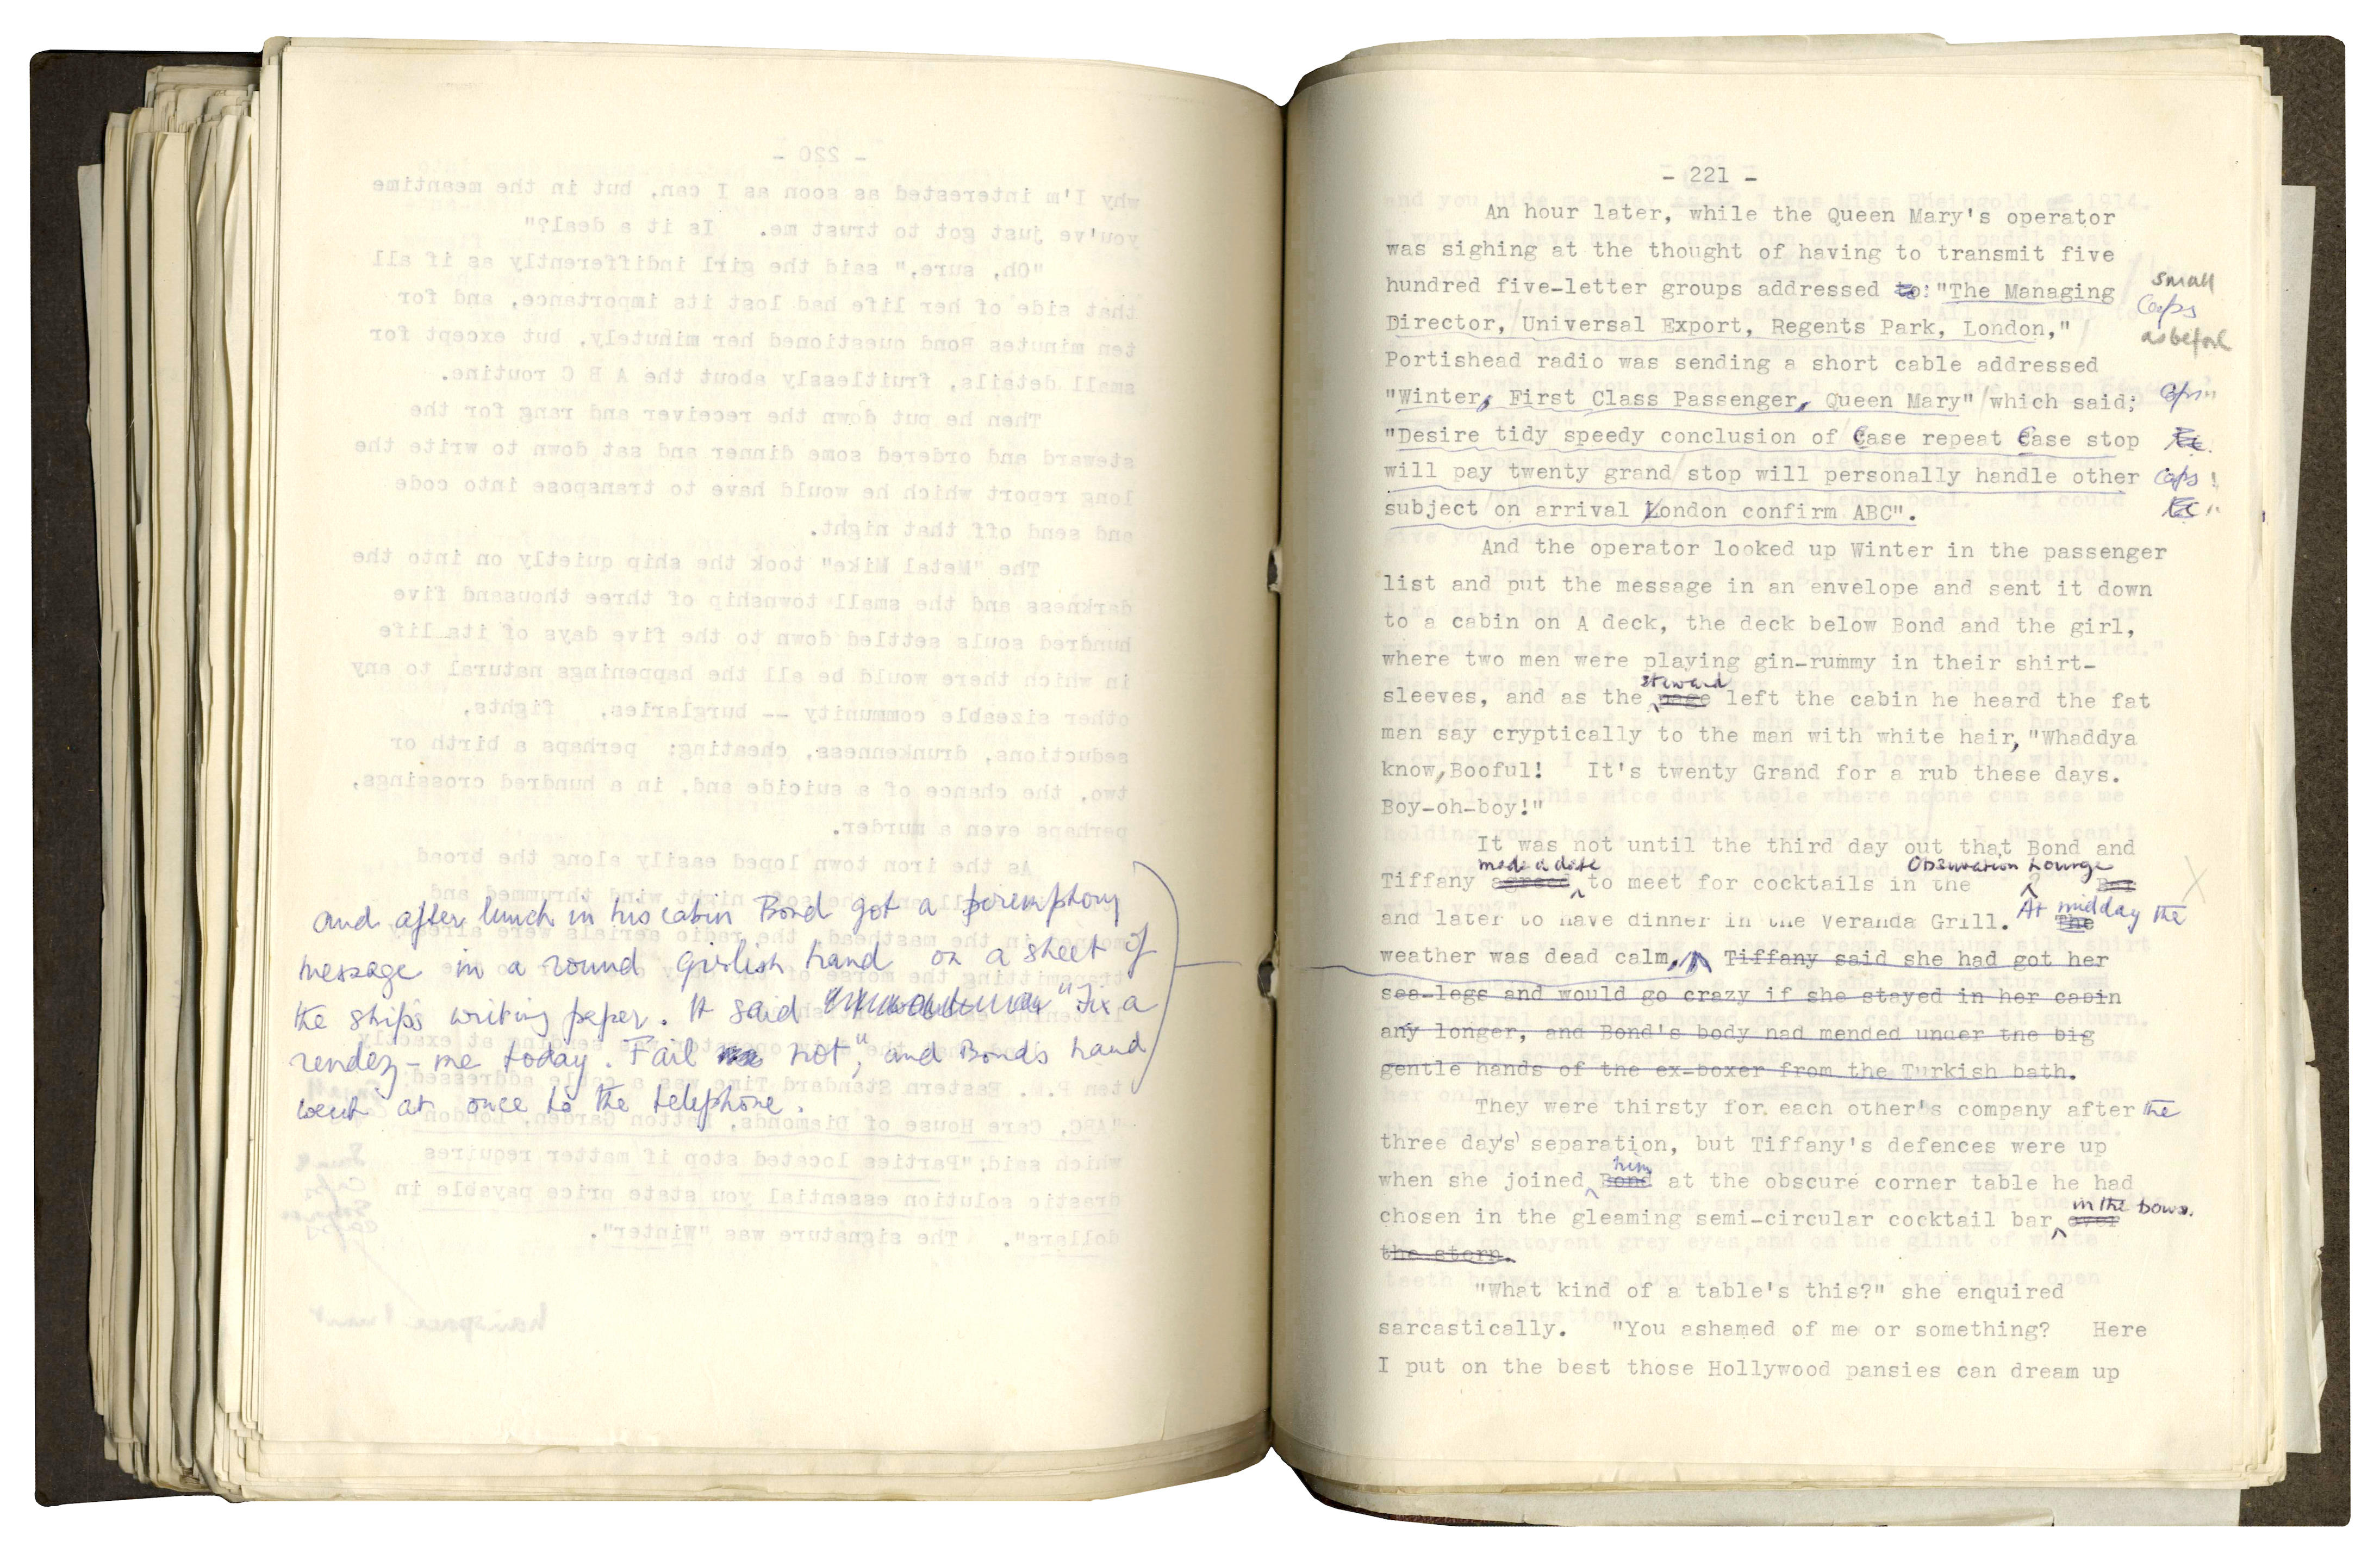 and after lunch in his cabin Bond got a peremptory
message in a round girlish hand on a sheet of
the ship's writing paper. It said "Fix a
rendez-me today. Fail not", and Bond's hand
went at once to the telephone.
- 221 -
An hour later, while the Queen Mary's operator
was sighing at the thought of having to transmit five
hundred five-letter groups addressed to: "The Managing
small
Caps
Director, Universal Export, Regents Park, London,"
as before
Portishead radio was sending a short cable addressed
"Winter, First Class Passenger, Queen Mary" which said;
Caps
"Desire tidy speedy conclusion of Case repeat Case stop
will pay twenty grand stop will personally handle other
Caps
subject on arrival London confirm ABC".
And the operator looked up Winter in the passenger
list and put the message in an envelope and sent it down
to a cabin on A deck, the deck below Bond and the girl,
where two men were playing gin-rummy in their shirt-
steward
sleeves, and as the page left the cabin he heard the fat
man say cryptically to the man with white hair, "Whaddya
know, Booful! It's twenty Grand for a rub these days.
Boy-oh-boy!"
It was not until the third day out that Bond and
made a date Observation Lounge
Tiffany agreed to meet for cocktails in the ? Bar
At midday the
and later to have dinner in the Veranda Grill. The
weather was dead calm, Tiffany said she had got her
sea-legs and would go crazy if she stayed in her cabin
any longer, and Bond's body had mended under the big
gentle hands of the ex-boxer from the Turkish bath.
They were thirsty for each other's company after the
three day's' separation, but Tiffany's defences were up
him
when she joined Bond at the obscure corner table he had
in the bows.
chosen in the gleaming semi-circular cocktail bar over
the stern.
"What kind of a table's this?" she enquired
sarcastically. "You ashamed of me or something? Here
I put on the best those Hollywood pansies can dream up